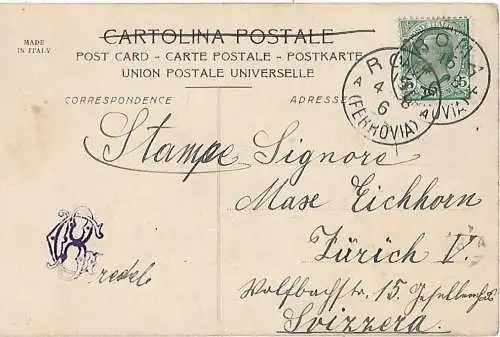 MADE
IN ITALY
CARTOLINA POSTALE
POST CARD - CARTE POSTALE - POSTKARTE
UNION POSTALE UNIVERSELLE
CORRESPONDENCE
ADRESSE
ROMA
4 6
(FERROVIA)
Stampe Signore
Mase Eichhorn
Zürich V.
Wolfbachstr. 15.
Svizzera.